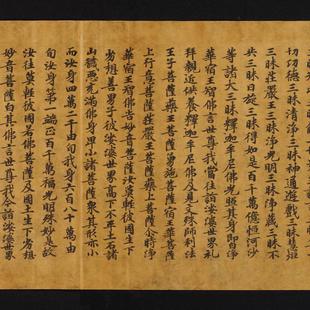 切功德三昧清淨三昧神通遊戲三昧慧炬
三昧莊嚴王三昧淨光明三昧淨藏三昧不
共三昧日旋三昧得如是百千萬億恒河沙
等諸大三昧釋迦牟尼佛光照其身即白淨
華宿王智佛言世尊我當往詣娑婆世界礼
拜親近供養釋迦牟尼佛及見文殊師利法
王子菩薩藥王菩薩勇施菩薩宿王華菩薩
上行意菩薩莊嚴王菩薩藥上菩薩尒時淨
華宿王智佛告妙音菩薩汝莫輕彼國生下
劣想善男子彼娑婆世界高下不平土石諸
山穢惡充滿佛身卑小諸菩薩衆其形亦小
而汝身四萬二千由旬我身六百八十萬由
旬汝身第一端正百千萬福光明殊妙是故
汝往莫輕彼國若佛菩薩及國土生下劣想
妙音菩薩白其佛言世尊我今詣娑婆世界